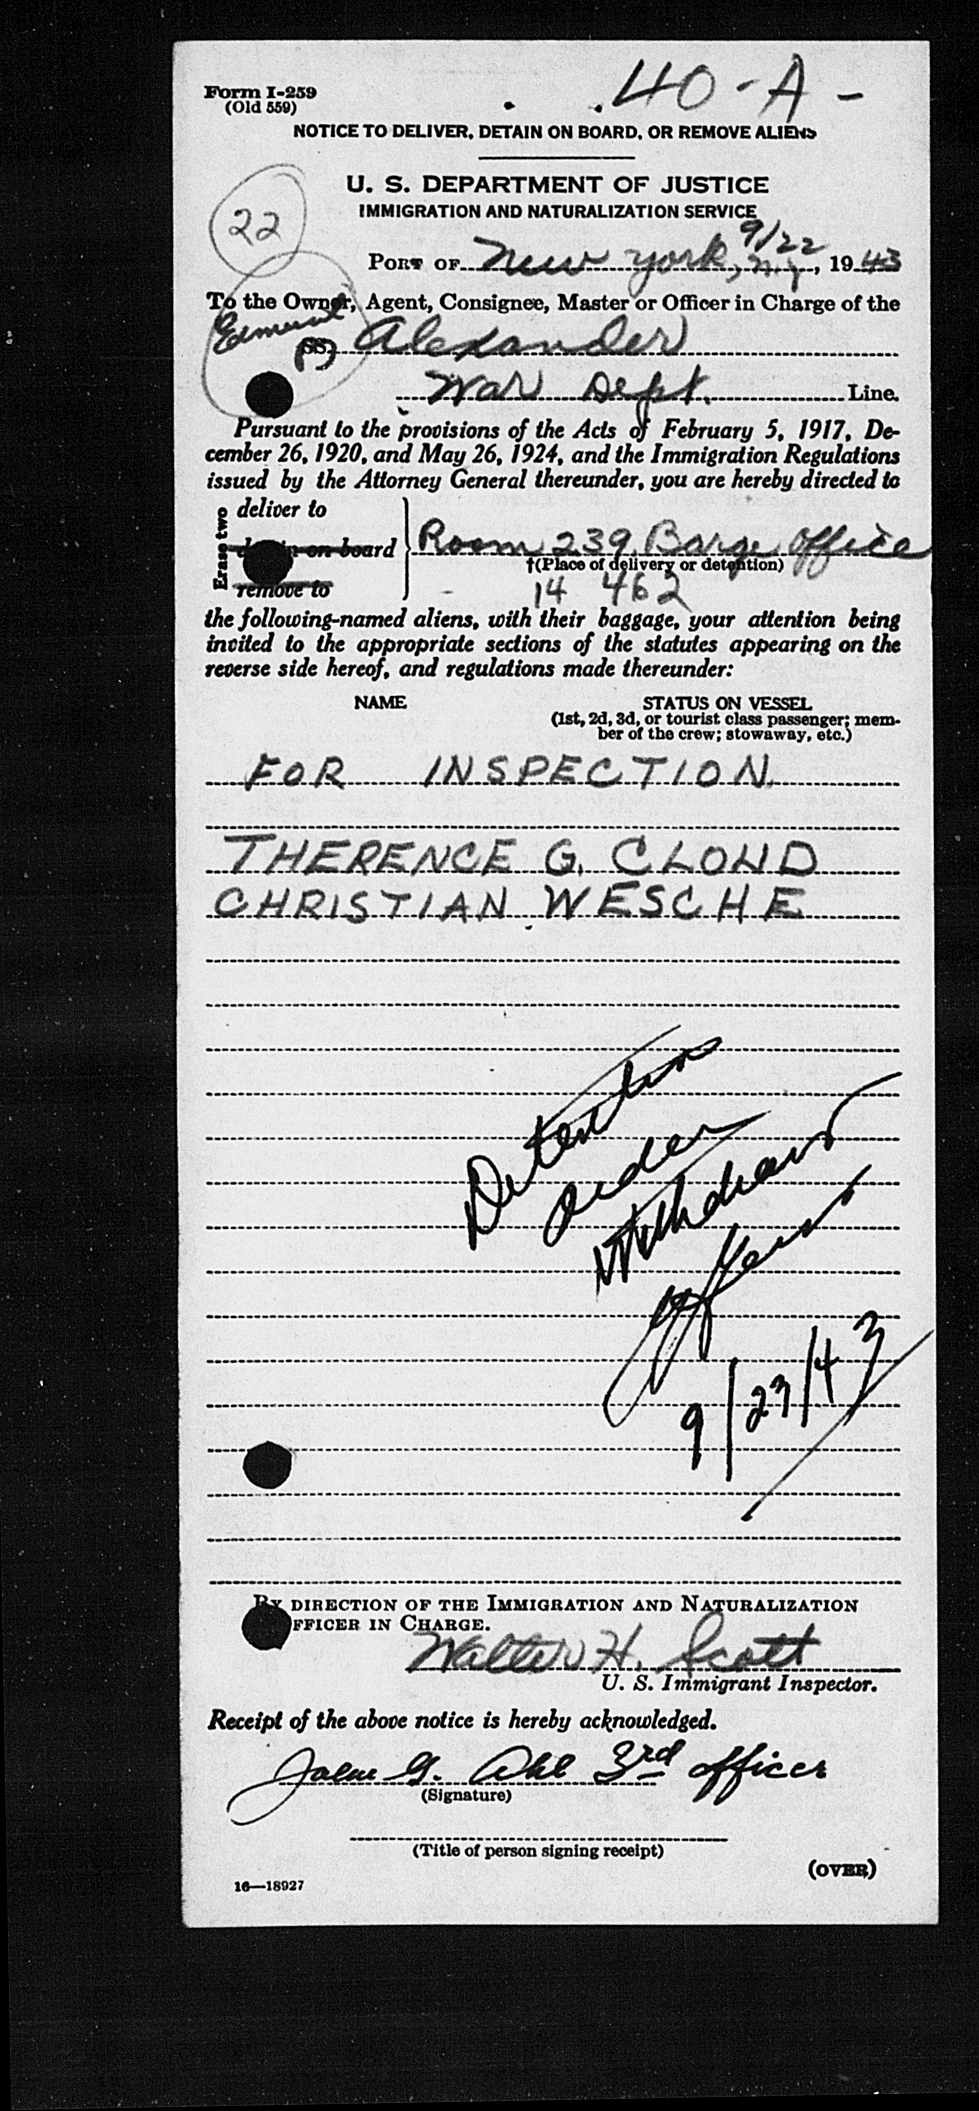 40-A-
Form I-259
(Old 559)
NOTICE TO DELIVER, DETAIN ON BOARD, OR REMOVE ALIENS
U. S. DEPARTMENT OF JUSTICE
IMMIGRATION AND NATURALIZATION SERVICE
22
9/22
PORT OF New York, N.Y., 1943
To the Owner, Agent, Consignee, Master or Officer in Charge of the
SS. Alexander
War Dept. Line.
Pursuant to the provisions of the Acts of February 5, 1917, De-
cember 26, 1920, and May 26, 1924, and the Immigration Regulations
issued by the Attorney General thereunder, you are hereby directed to
Erase two
deliver to
detain on board
remove to
Room 239 Barge Office
†(Place of delivery or detention)
14 462
the following-named aliens, with their baggage, your attention being
invited to the appropriate sections of the statutes appearing on the
reverse side hereof, and regulations made thereunder:
NAME
STATUS ON VESSEL
(1st, 2d, 3d, or tourist class passenger; mem-
ber of the crew; stowaway, etc.)
FOR INSPECTION.
THERENCE G. CLOUD
CHRISTIAN WESCHE
Detention
order
Withdrawn
9/23/43
BY DIRECTION OF THE IMMIGRATION AND NATURALIZATION
OFFICER IN CHARGE.
Walter H. Scott
U. S. Immigrant Inspector.
Receipt of the above notice is hereby acknowledged.
G. Ahl 3rd officer
(Signature)
(Title of person signing receipt)
(OVER)
16—18927